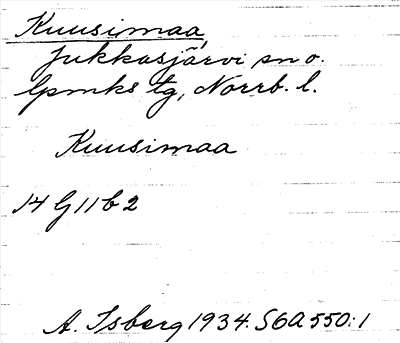 Kuusimaa
Jukkasjärvi sn o.
lpmks tg, Norrb. l.
Kuusimaa
14 G 11 b 2
A. Isberg 1934. S6A 550:1